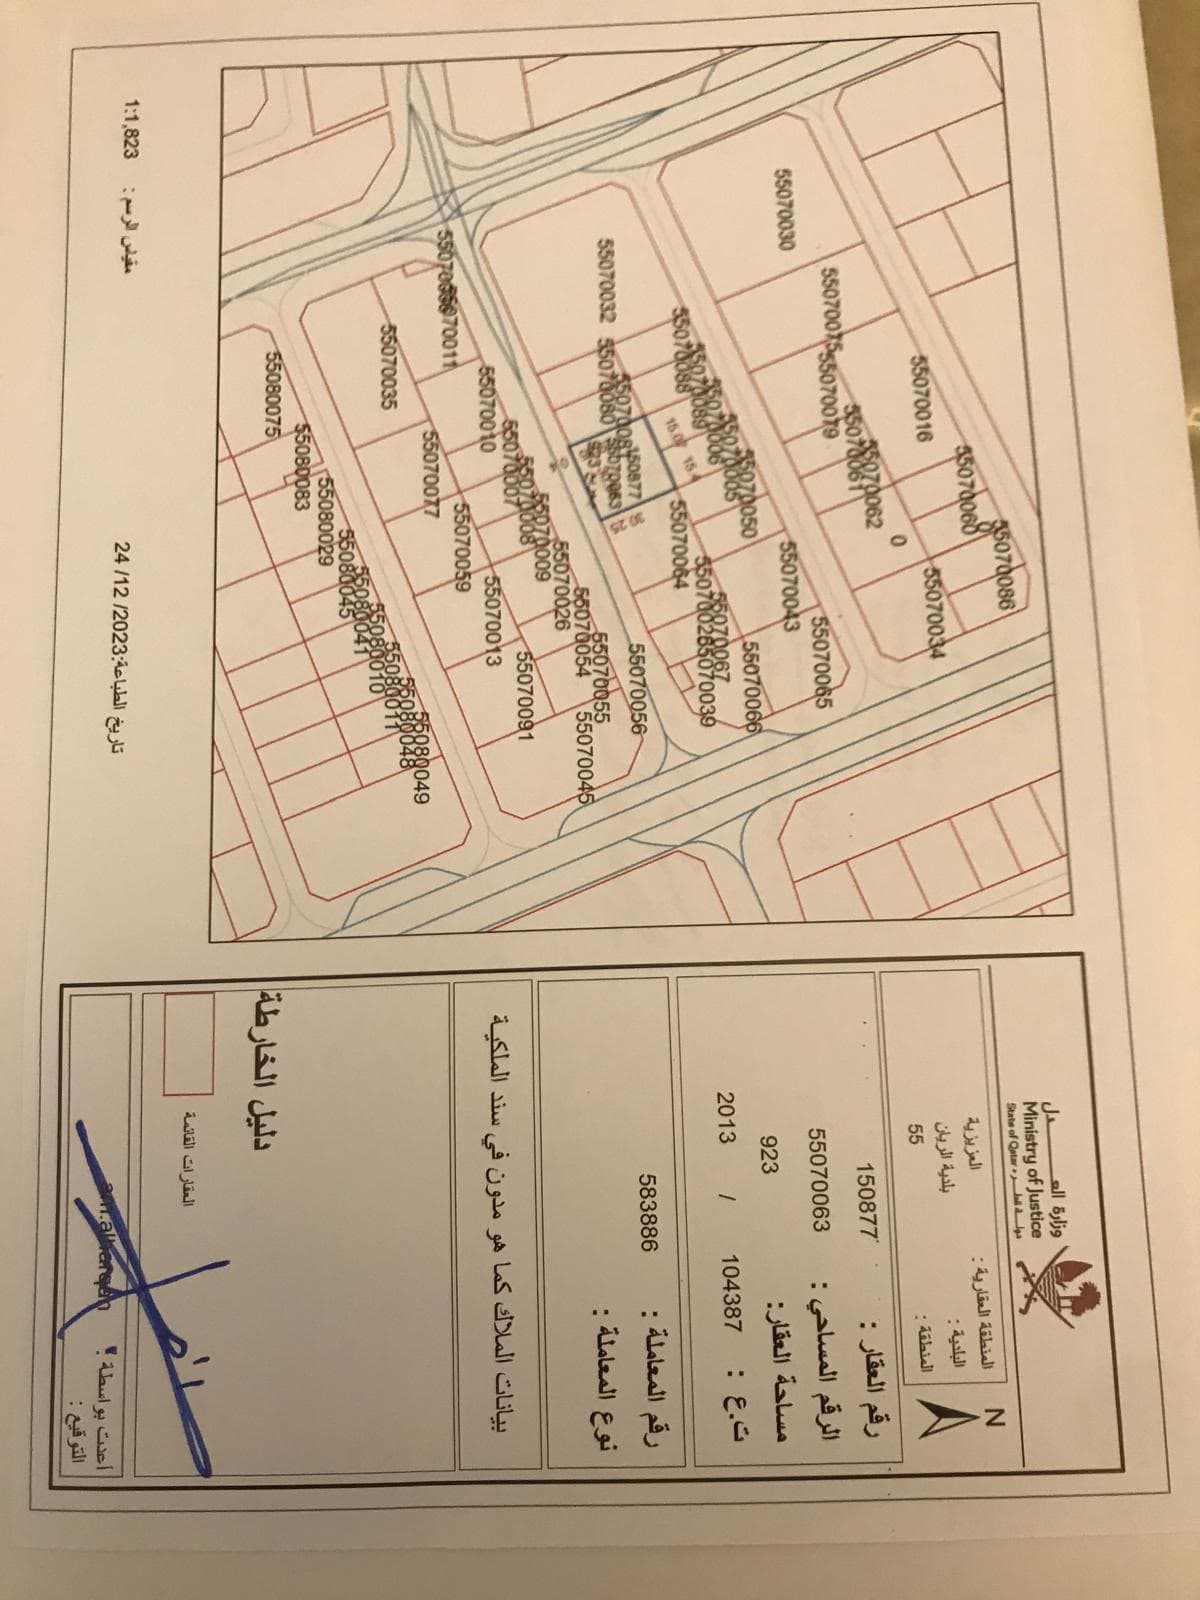 وزارة العـــدل
Ministry of Justice
دولـــة قطـــر • State of Qatar
المنطقة العقارية : العزيزية
البلدية : بلدية الريان
المنطقة : 55
N
رقم العقار : 150877
الرقم المساحي : 55070063
مساحة العقار: 923
ت.ع : 104387 / 2013
رقم المعاملة : 583886
نوع المعاملة :
بيانات الملاك كما هو مدون في سند الملكية
دليل الخارطة
العقارات القائمة
أعدت بواسطة :
التوقيع :
55070030
55070075
55070079
55070016
55070061
55070062
0
55070060
0
55070086
55070034
55070032
55070080
55070088
55070089
55070006
55070005
55070050
55070043
55070065
150877
55070063
15.4
30
25
55070064
55070067
55070039
55070066
55070011
55070035
55070010
55070007
55070008
55070009
55070026
55070054
55070055
55070056
55070077
55070059
55070013
55070091
55070045
55080075
55080083
55080029
55080045
55080041
55080010
55080011
55080048
55080049
مقياس الرسم : 1:1,823
تاريخ الطباعة:24 /12 /2023